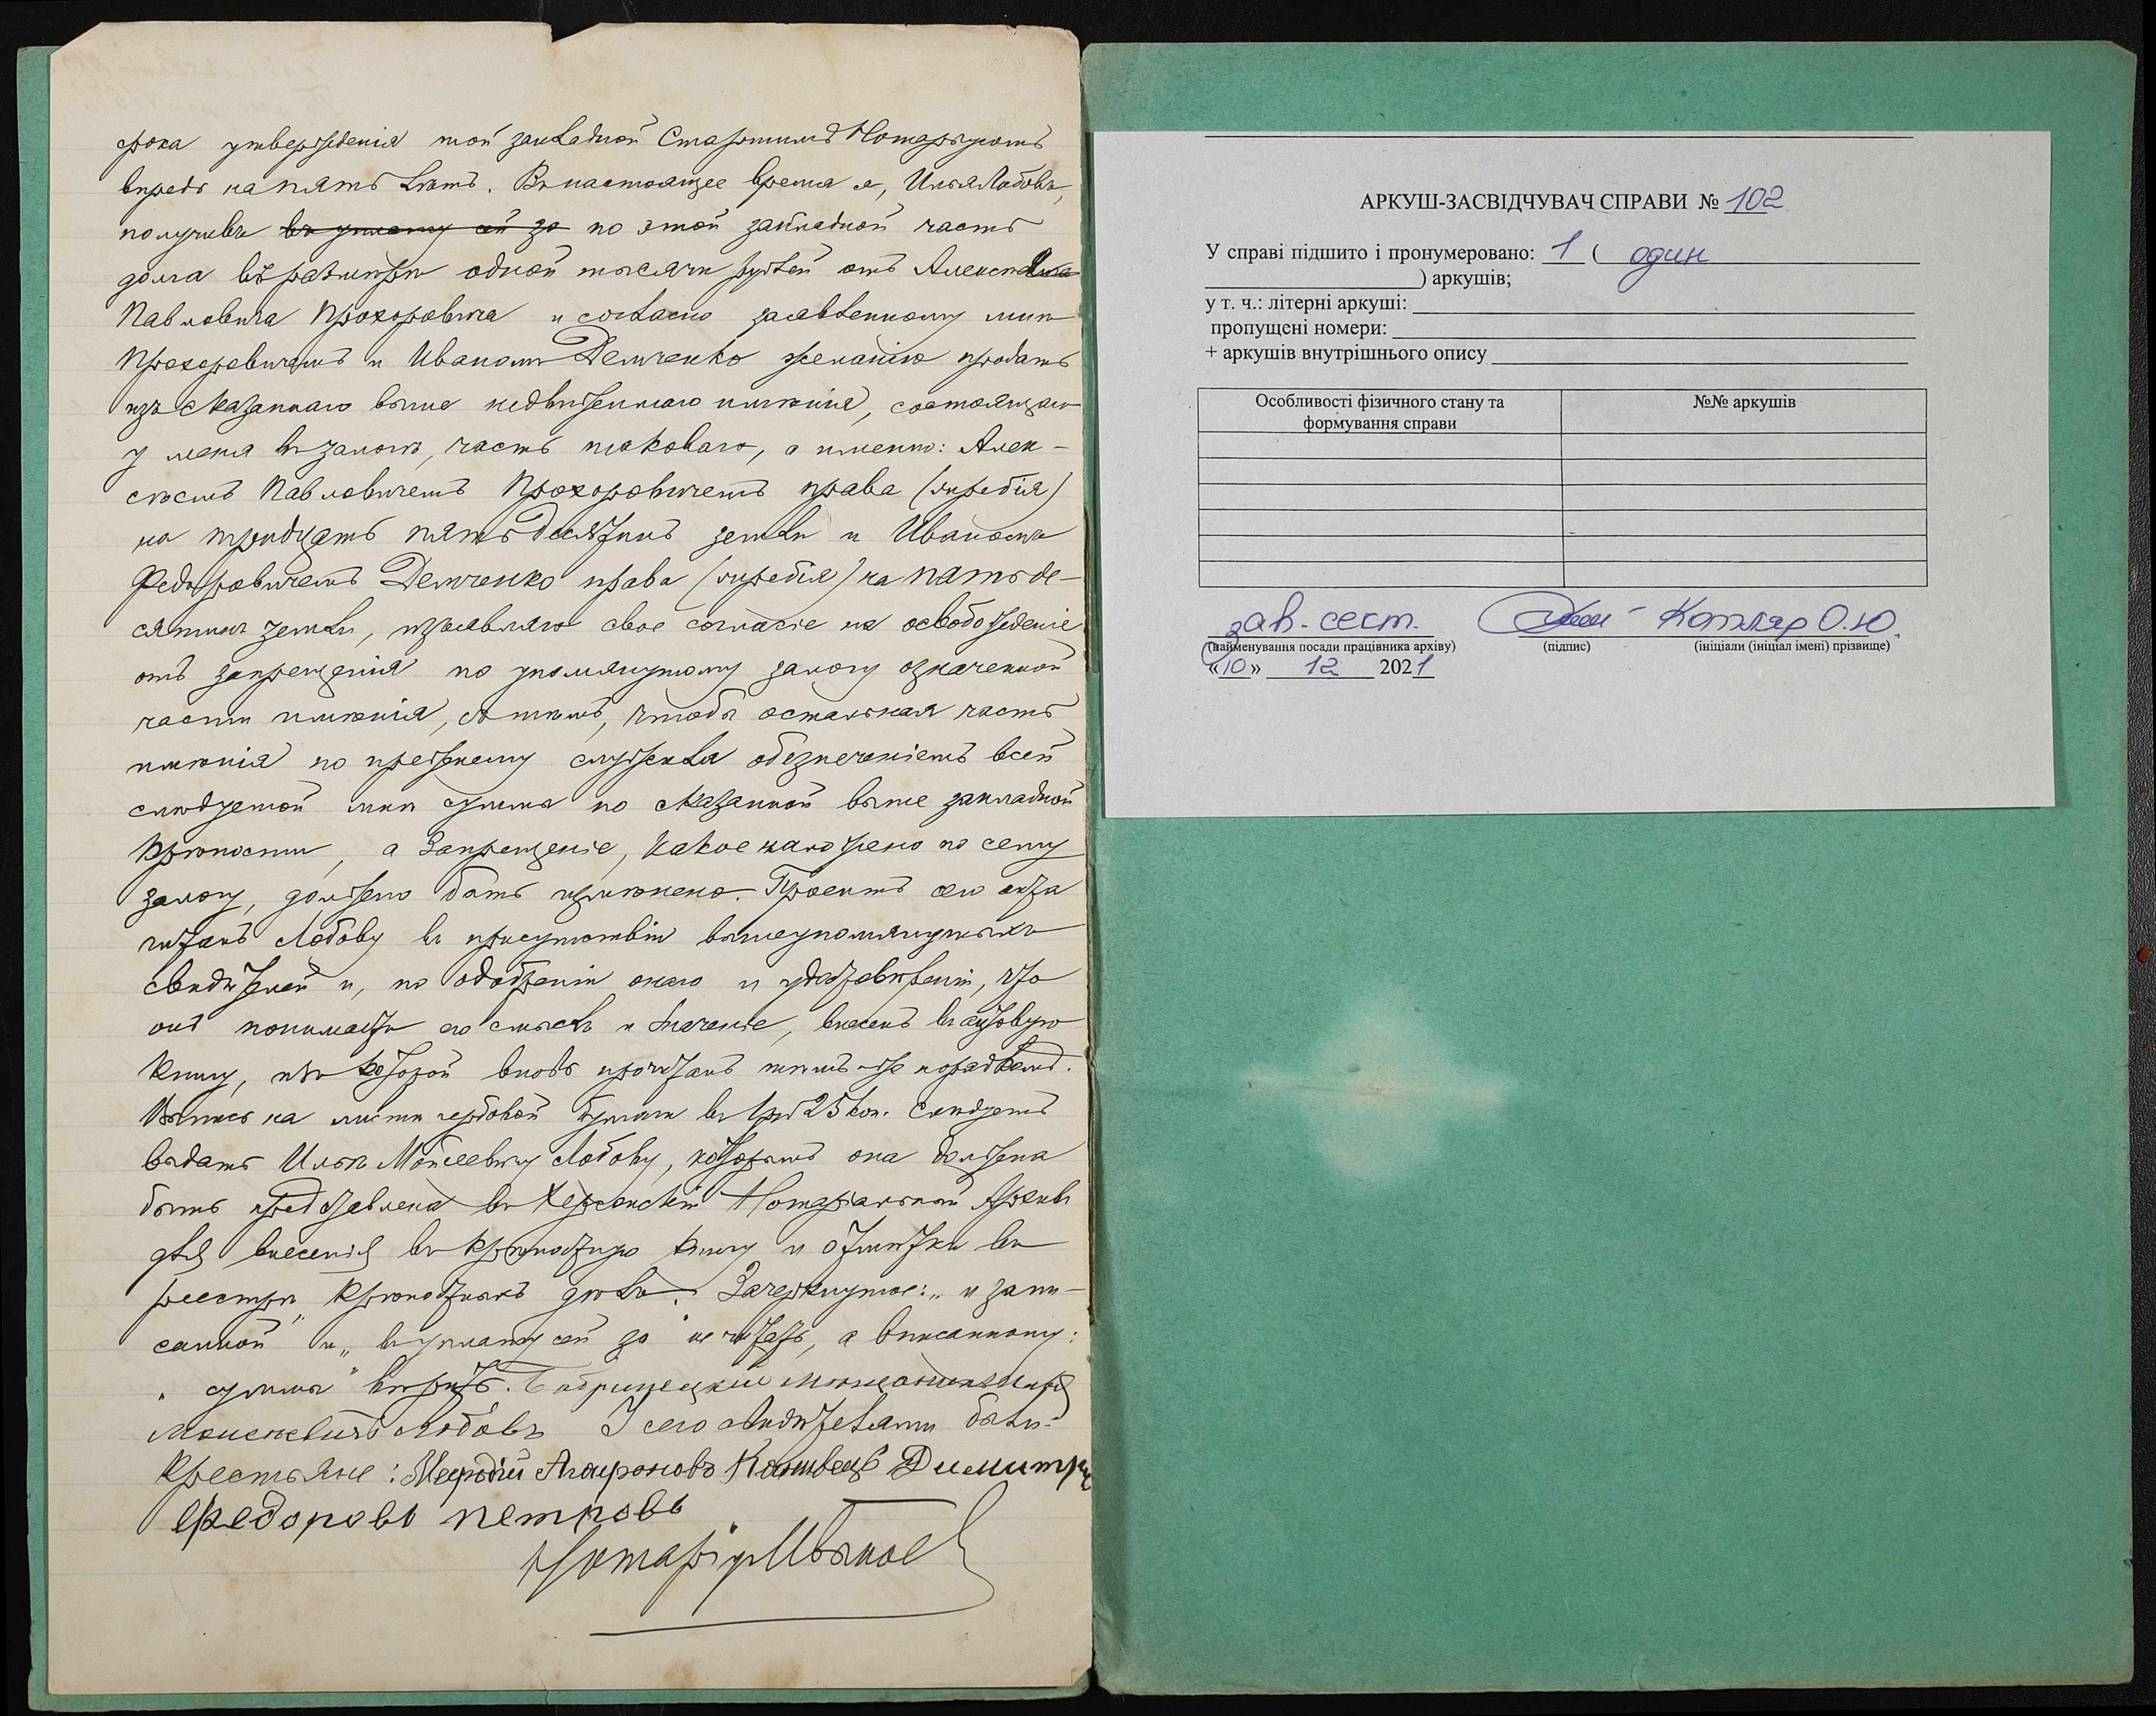 срока утвержденія той закладной Старшимъ Нотаріусомъ
впредь на пять лѣтъ. Въ настоящее время я, Илья Лобовъ,
получивъ въ уплату сей за по этой закладной часть
долга въ размѣрѣ одной тысячи рублей отъ Алексѣя
Павловича Прохоровича и согласно заявленному мнѣ
Прохоровичемъ и Иваномъ Демченко желанію продать
изъ сказаннаго выше недвижимаго имѣнія, состоящаго
у меня въ залогѣ, часть таковаго, а именно: Алек-
сѣемъ Павловичемъ Прохоровичемъ права (жребія)
на тридцать пять десятинъ земли и Иваномъ
Федоровичемъ Демченко права (жребія) на пять де-
сятинъ земли, изъявляю свое согласіе на освобожденіе
отъ запрещенія по упомянутому залогу означенной
части имѣнія, съ тѣмъ, чтобы остальная часть
имѣнія по прежнему служила обезпеченіемъ всей
слѣдуемой мнѣ суммы по сказанной выше закладной
крѣпости, а запрещеніе, какое наложено по сему
залогу, должно быть измѣнено. Проектъ сего акта
читанъ Лобову въ присутствіи вышеупомянутыхъ
свидѣтелей и, по одобреніи онаго и удостовѣреніи, что
онъ понимаетъ его смыслъ и значеніе, внесенъ въ актовую
книгу, по которой вновь прочитанъ тѣмъ-же порядкомъ.
Выпись на листѣ гербовой бумаги въ 1 руб 25 коп. слѣдуетъ
выдать Ильѣ Моисеевичу Лобову, которымъ она должна
быть представлена въ Херсонскій Нотаріальный Архивъ
для внесенія въ крѣпостную книгу и отмѣтки въ
реестрѣ крѣпостныхъ дѣлъ. Зачеркнутое: „и запи-
санной" и „въ уплату сей за" не читать, а вписанному:
„суммы" вѣрить. Бобринецкій мѣщанинъ Илья
Моисеевичъ Лобовъ У сего свидѣтелями были:
крестьяне: Меѳодій Агаѳоновъ Димитрій
Федоровъ Петровъ
Нотаріусъ
АРКУШ-ЗАСВІДЧУВАЧ СПРАВИ № 102
У справі підшито і пронумеровано: 1 ( один
) аркушів;
у т. ч.: літерні аркуші:
пропущені номери:
+ аркушів внутрішнього опису
Особливості фізичного стану та формування справи
№№ аркушів
зав. сект. Котляр О.Ю.
(найменування посади працівника архіву) (підпис) (ініціали (ініціал імені) прізвище)
«10» 12 2021